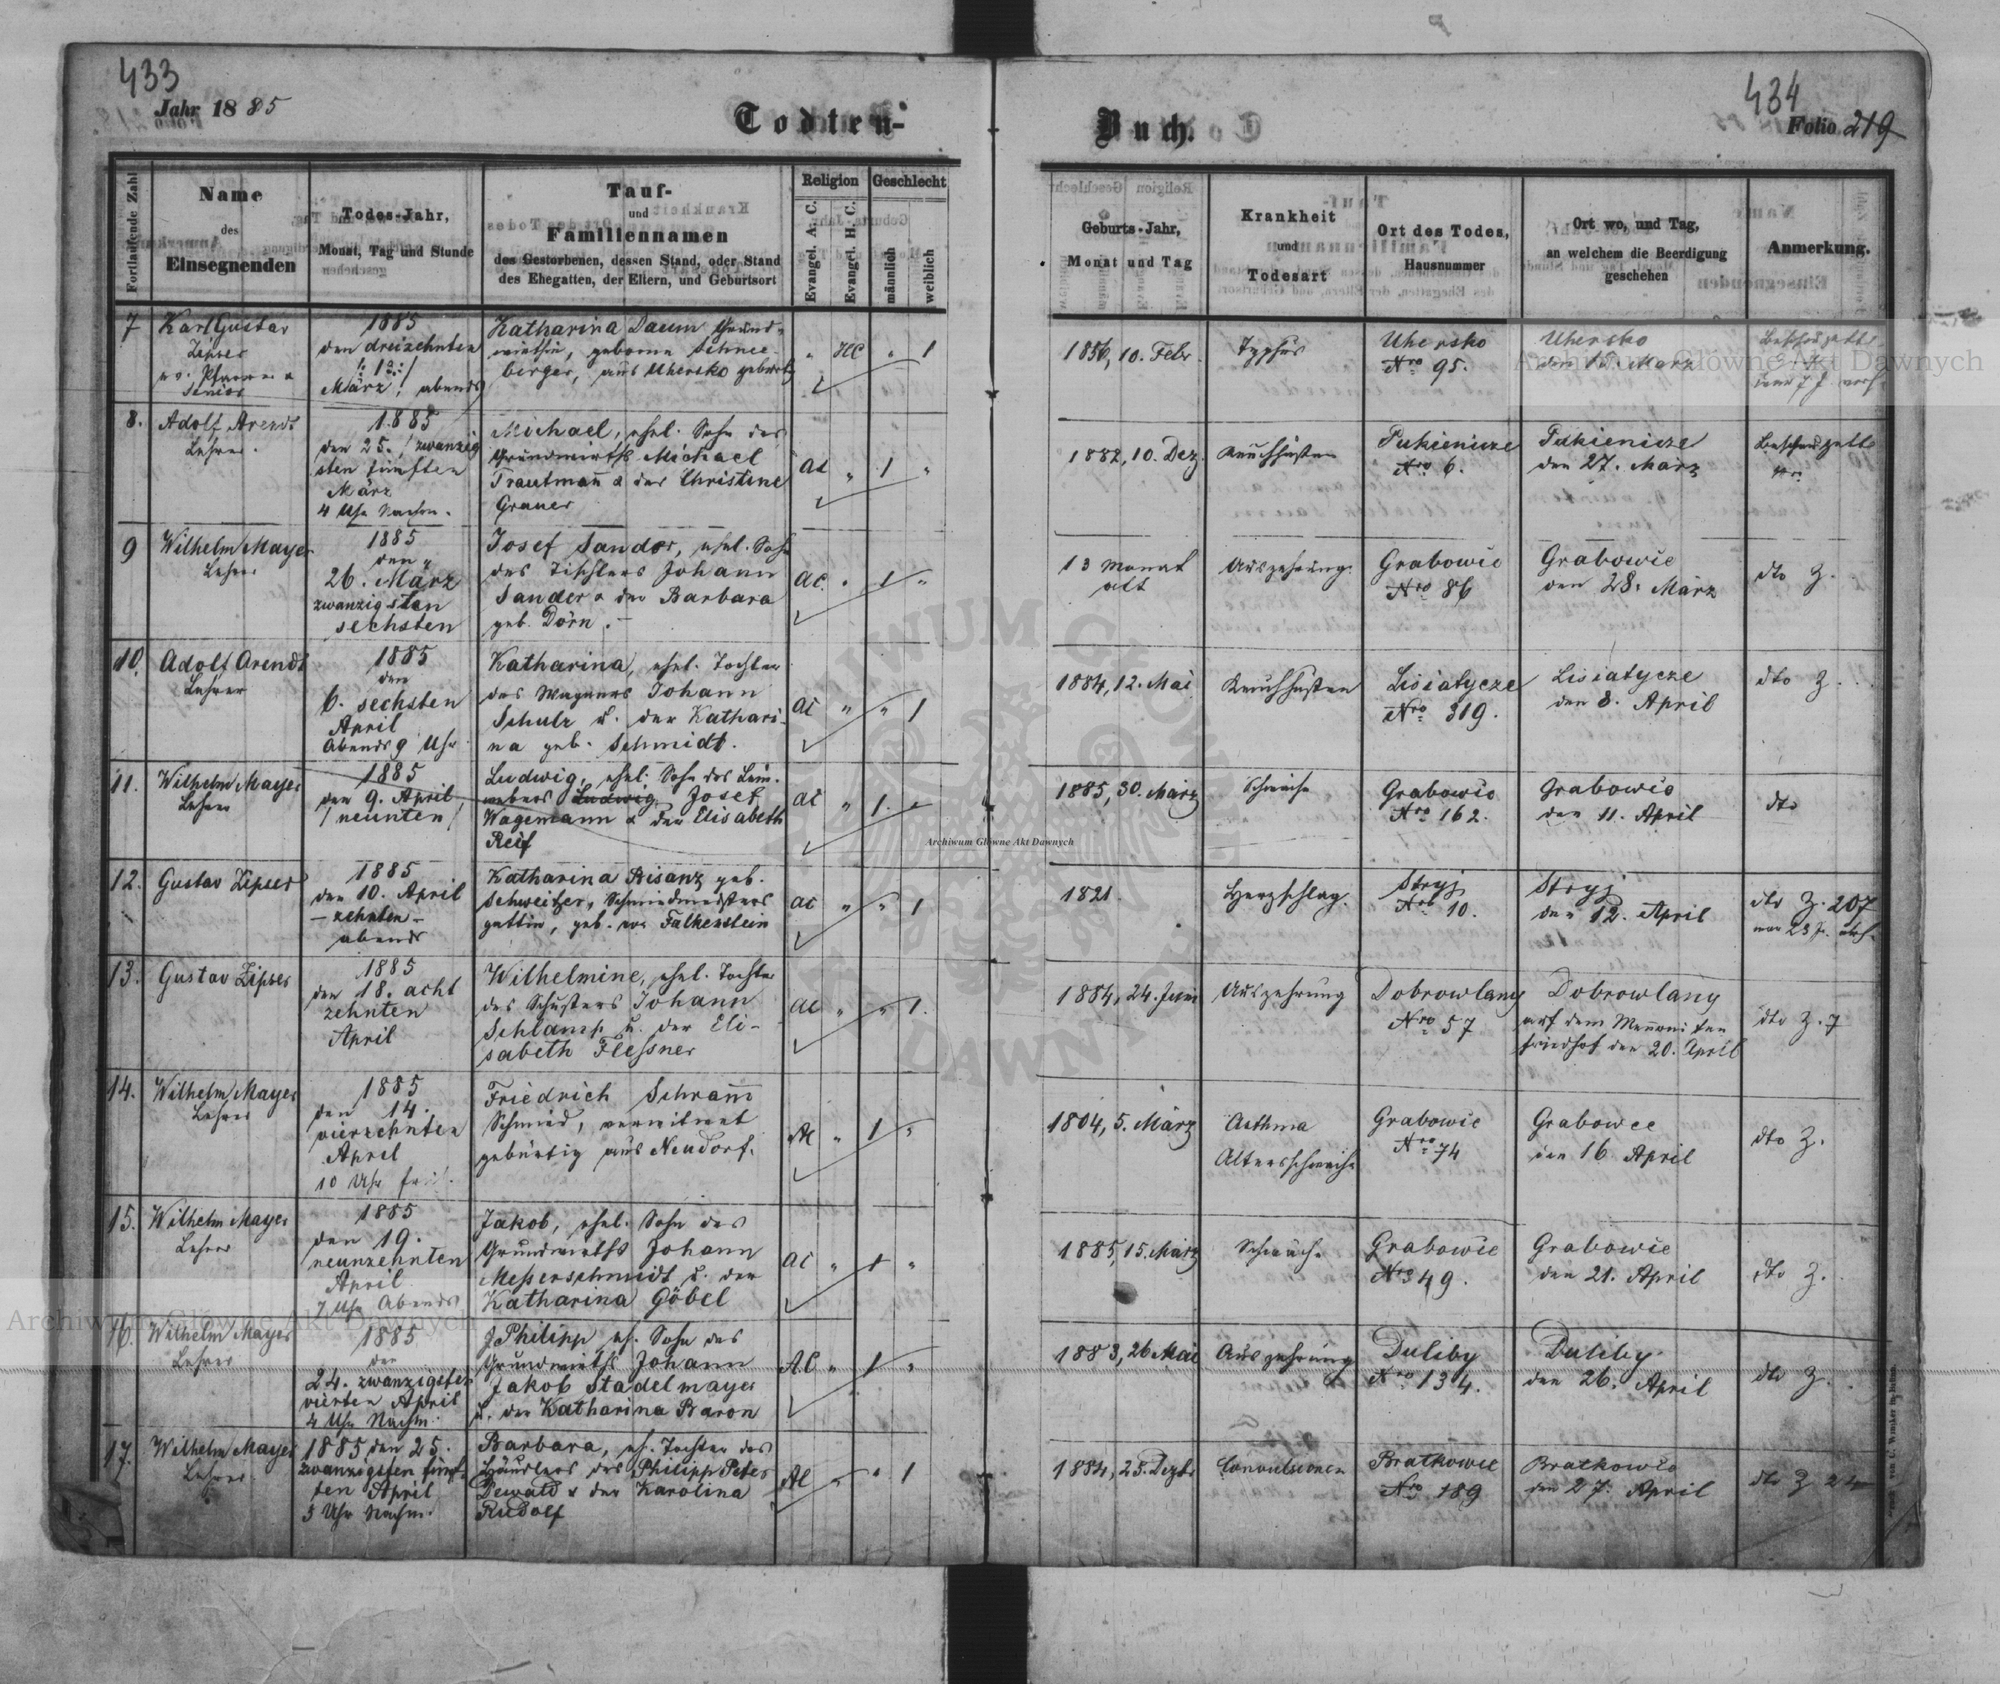 433
Jahr 1885
Todten-
Buch.
434
Folio 219
Fortlaufende Zahl
Name
des
Einsegnenden
Todes-Jahr,
Monat, Tag und Stunde
Tauf-
und
Familiennamen
des Gestorbenen, dessen Stand, oder Stand
des Ehegatten, der Eltern, und Geburtsort
Religion
Evangel. A. C.
Evangel. H. C.
Geschlecht
männlich
weiblich
Geburts-Jahr,
Monat und Tag
Krankheit
und
Todesart
Ort des Todes,
Hausnummer
Ort wo, und Tag,
an welchem die Beerdigung
geschehen
Anmerkung.
7
Karl Gustav
Zipser
Pfarrer
Senior
1885
den dreizehnten
/: 13 :/
März, abends
Katharina Daum Grund-
wirthin, geborne Schnee-
berger, aus Uhersko
" HC " 1
1856, 10. Febr.
Typhus
Uhersko
Nro 95.
Uhersko
den 15. März
8.
Adolf Arendt
Lehrer.
1885
den 25. / zwanzig
sten fünften
März
4 Uhr Nachm.
Michael, ehel. Sohn des
Grundwirths Michael
Trautmann & der Christine
Grauer
AC " 1 "
1882, 10. Dez.
Keuchhusten
Pukienicze
Nro 6.
Pukienicze
den 27. März
9
Wilhelm Mayer
Lehrer
1885
den "
26. März
zwanzigsten
sechsten
Josef Sander, ehel. Sohn
des Tischlers Johann
Sander & der Barbara
geb. Dörn.
AC. " 1 "
13 Monat
alt
Auszehrung.
Grabowic
Nro 86
Grabowic
den 28. März
dto Z.
10.
Adolf Arendt
Lehrer
1885
den
6. sechsten
April
Abends 9 Uhr
Katharina, ehel. Tochter
des Wagners Johann
Schulz u. der Kathari-
na geb. Schmidt.
AC " " 1
1884, 12. Mai
Keuchhusten
Lisiatycze
Nro 319.
Lisiatycze
den 8. April
dto Z.
11.
Wilhelm Mayer
Lehrer
1885
den 9. April
/ neunten /
Ludwig, ehel. Sohn des Lein-
webers Ludwig Josef
Wagemann & der Elisabeth
Reif
AC " 1 "
1885, 30. März
Schwäche
Grabowic
Nro 162.
Grabowic
den 11. April
dto
12.
Gustav Zipser
1885
den 10. April
– zehnten –
abends
Katharina Bisanz geb.
Schweitzer, Schmiedmeisters
gattin, geb. aus Falkenstein
AC " " 1
1821.
Herzschlag.
Stryj
Nro 10.
Stryj
den 12. April
dto Z. 207
13.
Gustav Zipser
1885
den 18. acht
zehnten
April
Wilhelmine, ehel. Tochter
des Schusters Johann
Schlamp u. der Eli-
sabeth Flessner
AC " " 1.
1884, 24. Juni
Auszehrung
Dobrowlany
Nro 57
Dobrowlany
auf dem Mennoniten
friedhof den 20. April
dto Z. 7
14.
Wilhelm Mayer
Lehrer
1885
den 14.
vierzehnten
April
10 Uhr
Friedrich Schramm
Schmied, verwitwet
gebürtig aus Neudorf.
AC " 1 "
1804, 5. März
Asthma
Altersschwäche
Grabowic
Nro 74
Grabowce
den 16 April
dto Z.
15.
Wilhelm Mayer
Lehrer
1885
den 19.
neunzehnten
April
7 Uhr Abends
Jakob, ehel. Sohn des
Grundwirths Johann
Messerschmidt u. der
Katharina Göbel
AC " 1 "
1885, 15. März
Schwäche
Grabowic
Nro 49.
Grabowic
den 21. April
dto Z.
16.
Wilhelm Mayer
Lehrer
1885
den
24. zwanzigsten
vierten April
4 Uhr Nachm.
Philipp, eh. Sohn des
Grundwirths Johann
Jakob Stadelmayer
u. der Katharina Baron
A.C " 1 "
1883, 26 Mai
Auszehrung
Duliby
Nro 134.
Duliby
den 26. April
dto Z.
17.
Wilhelm Mayer
Lehrer.
1885 den 25.
zwanzigsten fünf-
ten April
3 Uhr Nachm.
Barbara, eh. Tochter des
Händlers des Philipp Peter
Dewald & der Karolina
Rudolf
AC " " 1
1884, 25. Dezbr
Convulsionen
Bratkowce
Nro 189
Bratkowic
den 27. April
dto Z 24
Archiwum Główne Akt Dawnych
Archiwum Główne Akt Dawnych
Archiwum Główne Akt Dawnych